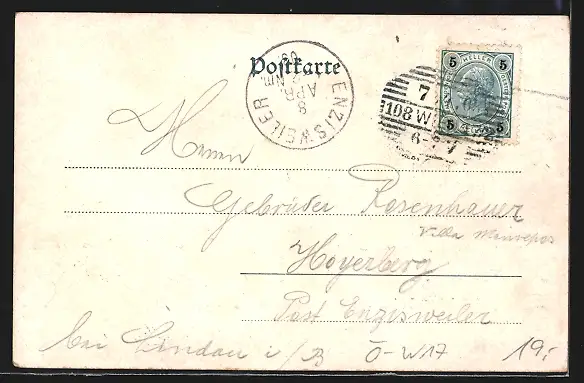 Postkarte
ENZISWEILER
8
APR.
Nm.
5 HELLER 5
5 5
7
108 W
6-7
Herrn
Gebrüder Rosenhauer
Villa
Hoyerberg
Post Enzisweiler
bei Lindau i/B
Ö-W17
19,-